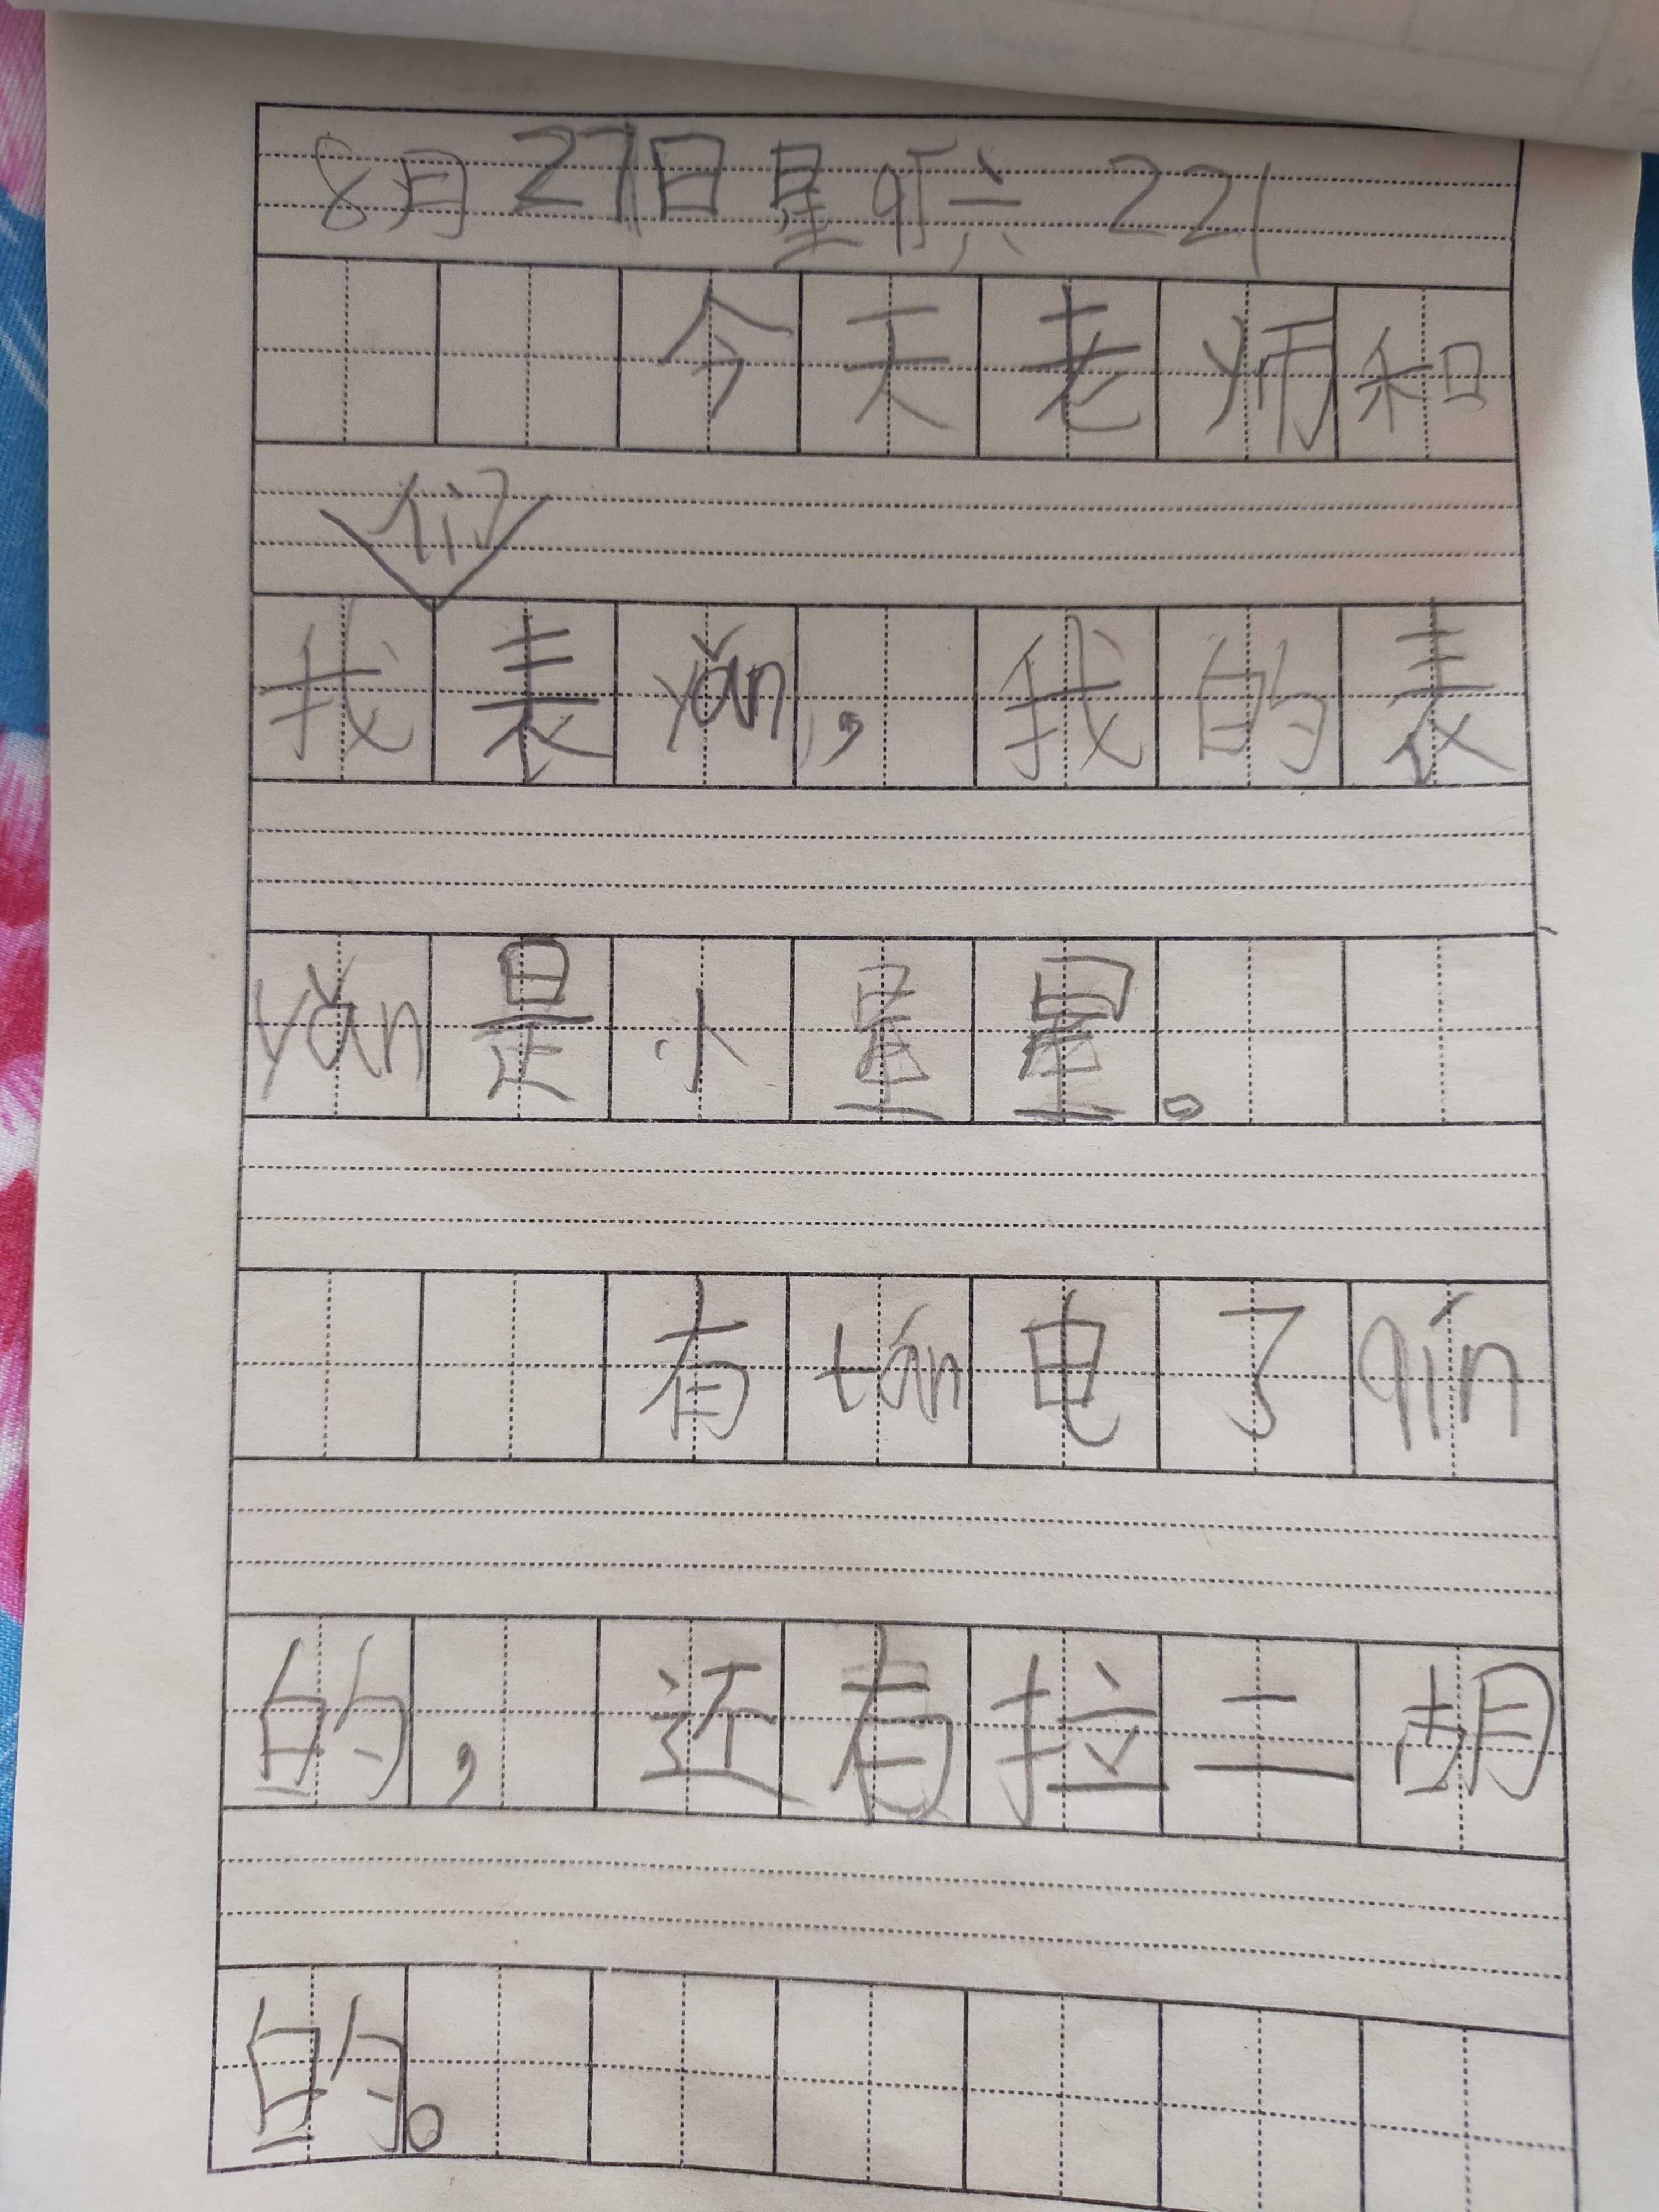 8月27日星期六 221
今天老师和
们
我表yǎn，我的表
yǎn是小星星。
有tán电了qín
的，还有拉二胡
的。